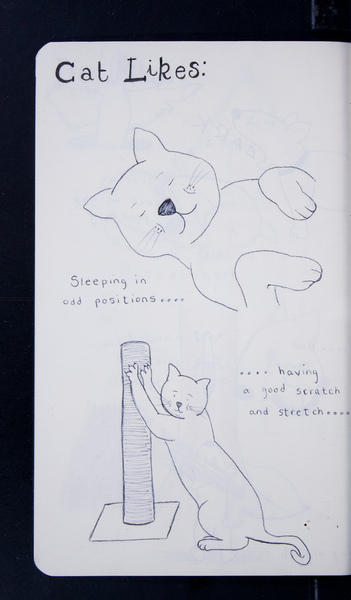 Cat Likes:
Sleeping in
odd positions....
.... having
a good scratch
and stretch....